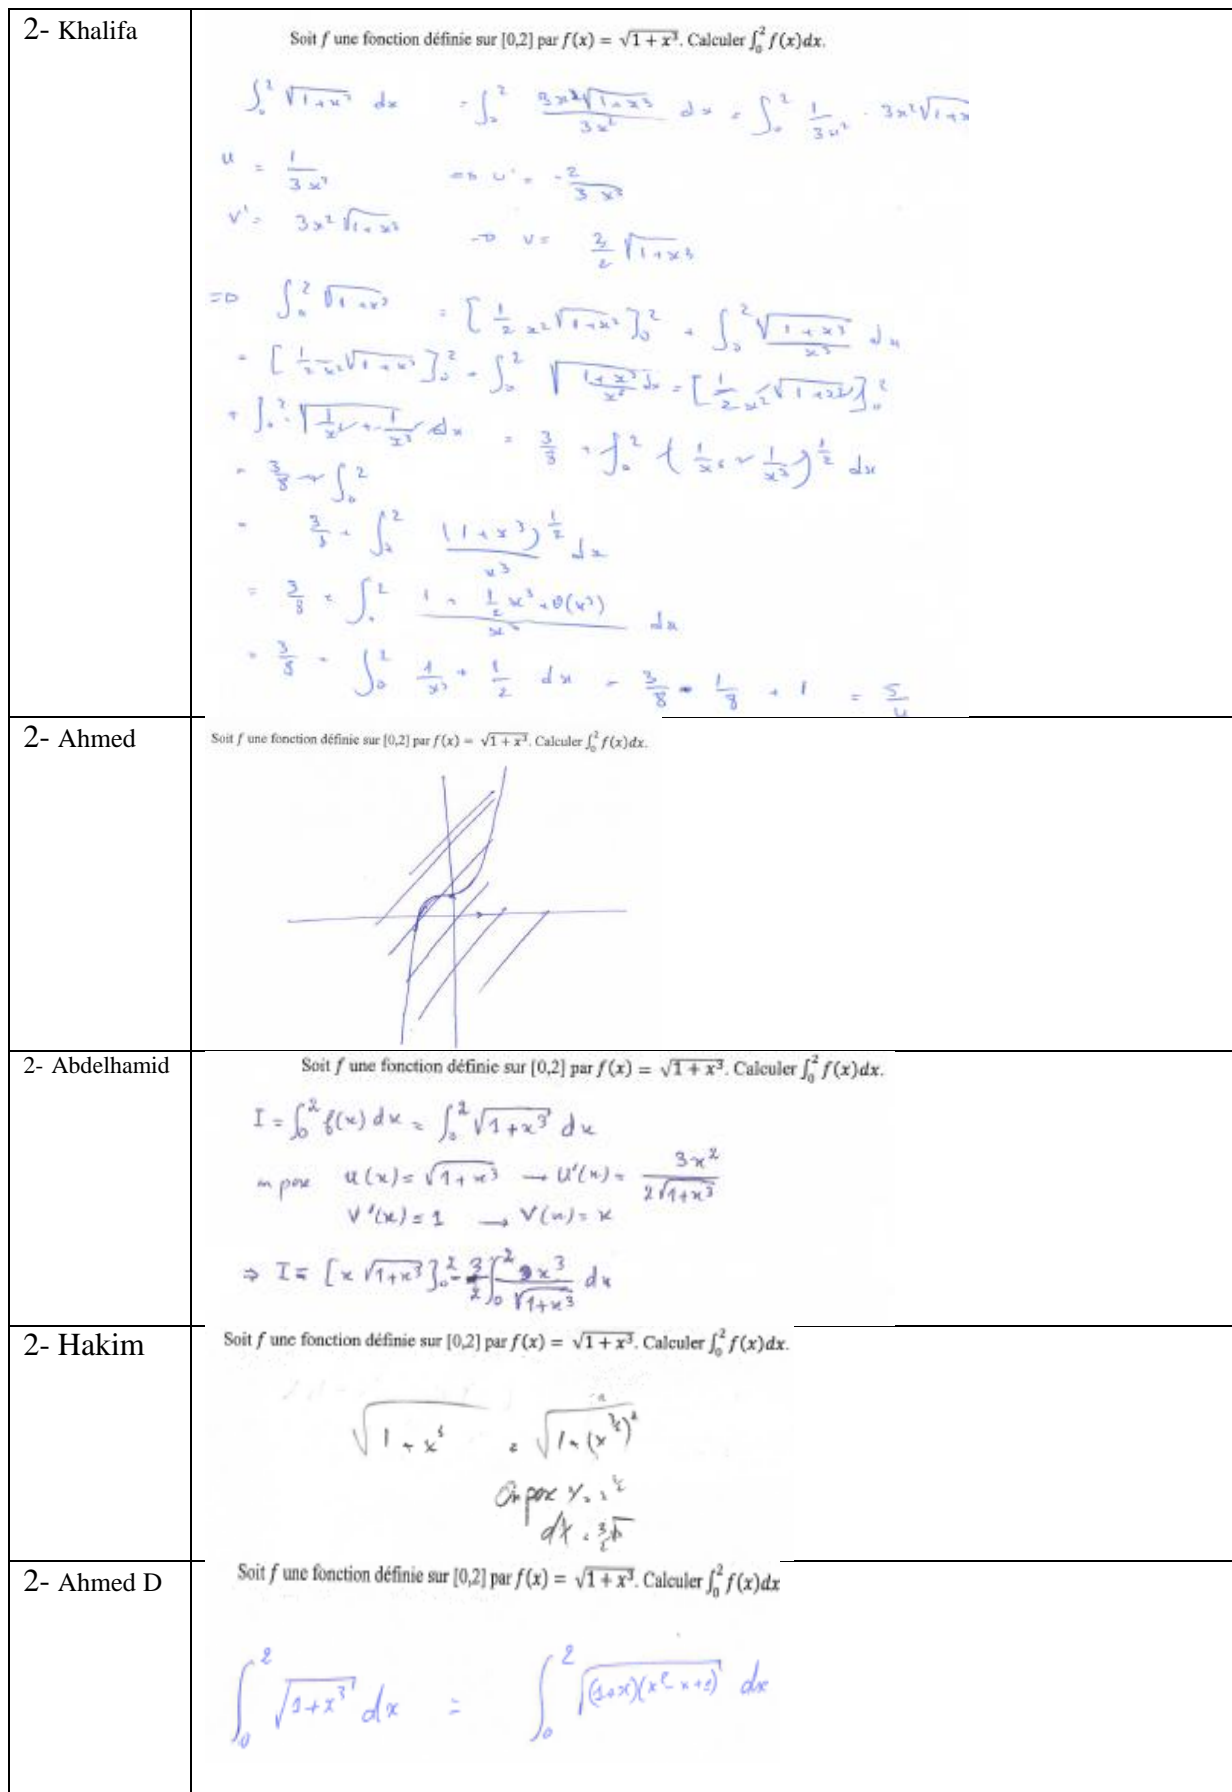 2- Khalifa
Soit f une fonction définie sur [0,2] par f(x) = √(1 + x³). Calculer ∫₀² f(x)dx.
∫₀² √(1+x³) dx = ∫₀² 3x²√(1+x³) / 3x² dx = ∫₀² 1/3x² · 3x²√(1+x
u = 1/3x² => u' = -2/3x³
v' = 3x²√(1+x³) → v =
=> ∫₀² √(1+x³) = [1/2x² √(1+x³)]₀² + ∫₀² √(1+x³)/x³ dx
= 3/8 + ∫₀²
= 3/8 + ∫₀² (1+x³)^½ / x³ dx
= 3/8 + ∫₀² (1 + ½x³ + θ(x³)) / x³ dx
= 3/8 + ∫₀² 1/x³ + 1/2 dx = 3/8 - 1/8 + 1 = 5/4
2- Ahmed
Soit f une fonction définie sur [0,2] par f(x) = √(1 + x³). Calculer ∫₀² f(x)dx.
2- Abdelhamid
Soit f une fonction définie sur [0,2] par f(x) = √(1 + x³). Calculer ∫₀² f(x)dx.
I = ∫₀² f(x) dx = ∫₀² √(1+x³) dx
on pose u(x) = √(1+x³) → u'(x) = 3x² / 2√(1+x³)
v'(x) = 1 → v(x) = x
⇒ I = [x √(1+x³)]₀² - 3/2 ∫₀² x³ / √(1+x³) dx
2- Hakim
Soit f une fonction définie sur [0,2] par f(x) = √(1 + x³). Calculer ∫₀² f(x)dx.
√(1 + x³) = √(1 + (x^3/2)²)
On pose
2- Ahmed D
Soit f une fonction définie sur [0,2] par f(x) = √(1 + x³). Calculer ∫₀² f(x)dx
∫₀² √(1+x³) dx = ∫₀² √((1+x)(x²-x+1)) dx